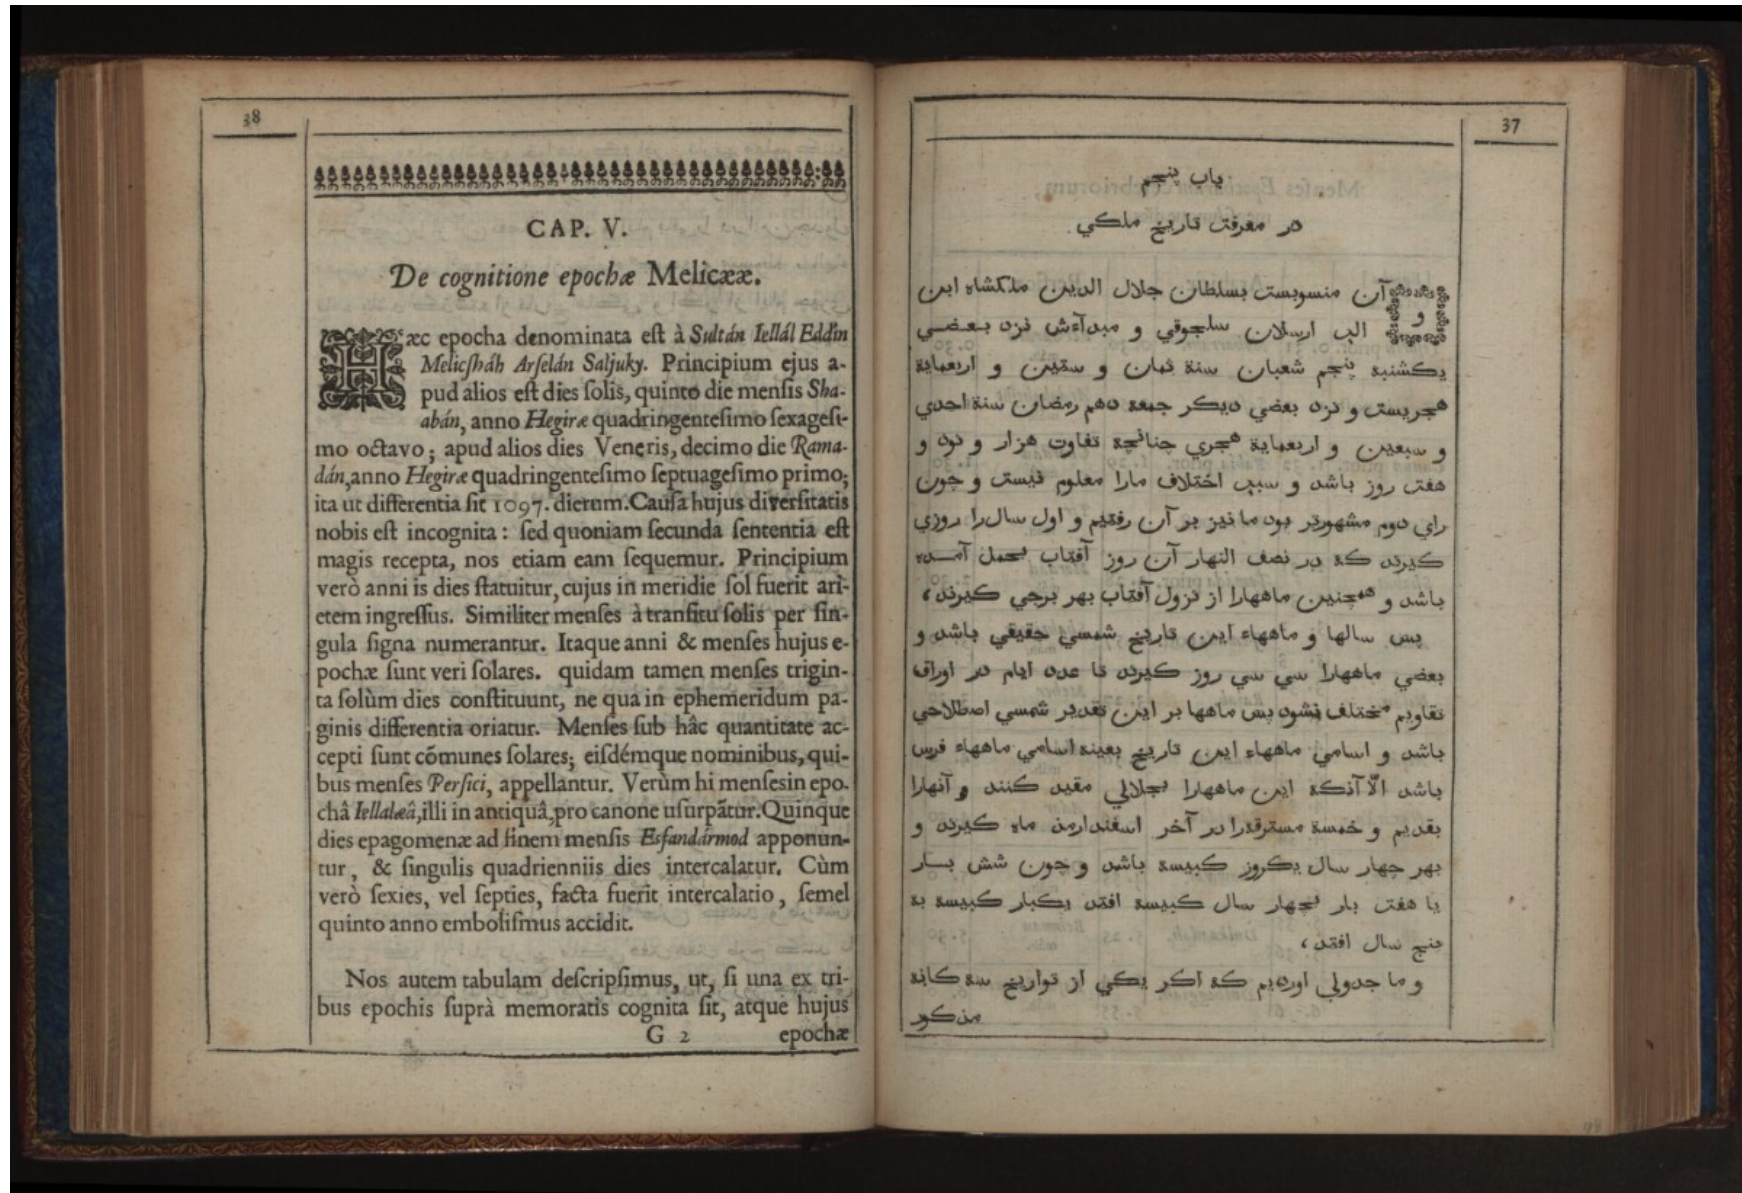 38
CAP. V.
De cognitione epochæ Melicææ.
Hæc epocha denominata eſt à Sultán Iellál Eddin
Melicſháh Arſelán Saljuky. Principium ejus a-
pud alios eſt dies ſolis, quinto die menſis Sha-
abán, anno Hegiræ quadringenteſimo ſexageſi-
mo octavo; apud alios dies Veneris, decimo die Rama-
dán, anno Hegiræ quadringenteſimo ſeptuageſimo primo;
ita ut differentia ſit 1097. dierum. Cauſa hujus diverſitatis
nobis eſt incognita: ſed quoniam ſecunda ſententia eſt
magis recepta, nos etiam eam ſequemur. Principium
verò anni is dies ſtatuitur, cujus in meridie ſol fuerit ari-
etem ingreſſus. Similiter menſes à tranſitu ſolis per ſin-
gula ſigna numerantur. Itaque anni & menſes hujus e-
pochæ ſunt veri ſolares. quidam tamen menſes trigin-
ta ſolùm dies conſtituunt, ne qua in ephemeridum pa-
ginis differentia oriatur. Menſes ſub hâc quantitate ac-
cepti ſunt cõmunes ſolares; eiſdémque nominibus, qui-
bus menſes Perſici, appellantur. Verùm hi menſesin epo-
châ Iellalæâ, illi in antiquâ, pro canone uſurpãtur. Quinque
dies epagomenæ ad finem menſis Esfandármod apponun-
tur, & ſingulis quadrienniis dies intercalatur. Cùm
verò ſexies, vel ſepties, facta fuerit intercalatio, ſemel
quinto anno emboliſmus accidit.
Nos autem tabulam deſcripſimus, ut, ſi una ex tri-
bus epochis ſuprà memoratis cognita ſit, atque hujus
G 2 epochæ
37
باب پنجم
در معرفت تاريخ ملكي
و آن منسوبست بسلطان جلال الدين ملكشاه ابن
الب ارسلان سلجوقي و مبدآءش نزد بعضي
يكشنبه پنجم شعبان سنة ثمان و ستين و اربعماية
هجريست و نزد بعضي ديكر جمعه دهم رمضان سنة احدي
و سبعين و اربعماية هجري چنانچه تفاوت هزار و نود و
هفت روز باشد و سبب اختلاف مارا معلوم نيست و چون
راي دوم مشهورتر بود ما نيز بر آن رفتيم و اول سال را روزي
كيرند كه در نصف النهار آن روز آفتاب بحمل آمده
باشد و همچنين ماههارا از نزول آفتاب بهر برجي كيرند،
پس سالها و ماههاء اين تاريخ شمسي حقيقي باشد و
بعضي ماههارا سي سي روز كيرند تا عدد ايام در اوراق
تقاويم مختلف نشود پس ماهها بر اين تقدير شمسي اصطلاحي
باشد و اسامي ماههاء اين تاريخ بعينه اسامي ماههاء فرس
باشد الّا آنكه اين ماههارا بجلالي مقيد كنند و آنهارا
بقديم و خمسة مسترقه‌را در آخر اسفندارمذ ماه كيرند و
بهر چهار سال يكروز كبيسه باشد و چون شش بار
يا هفت بار بچهار سال كبيسه افتد يكبار كبيسه به
پنج سال افتد،
و ما جدولي اورديم كه اكر يكي از تواريخ سه كانه
مذكور